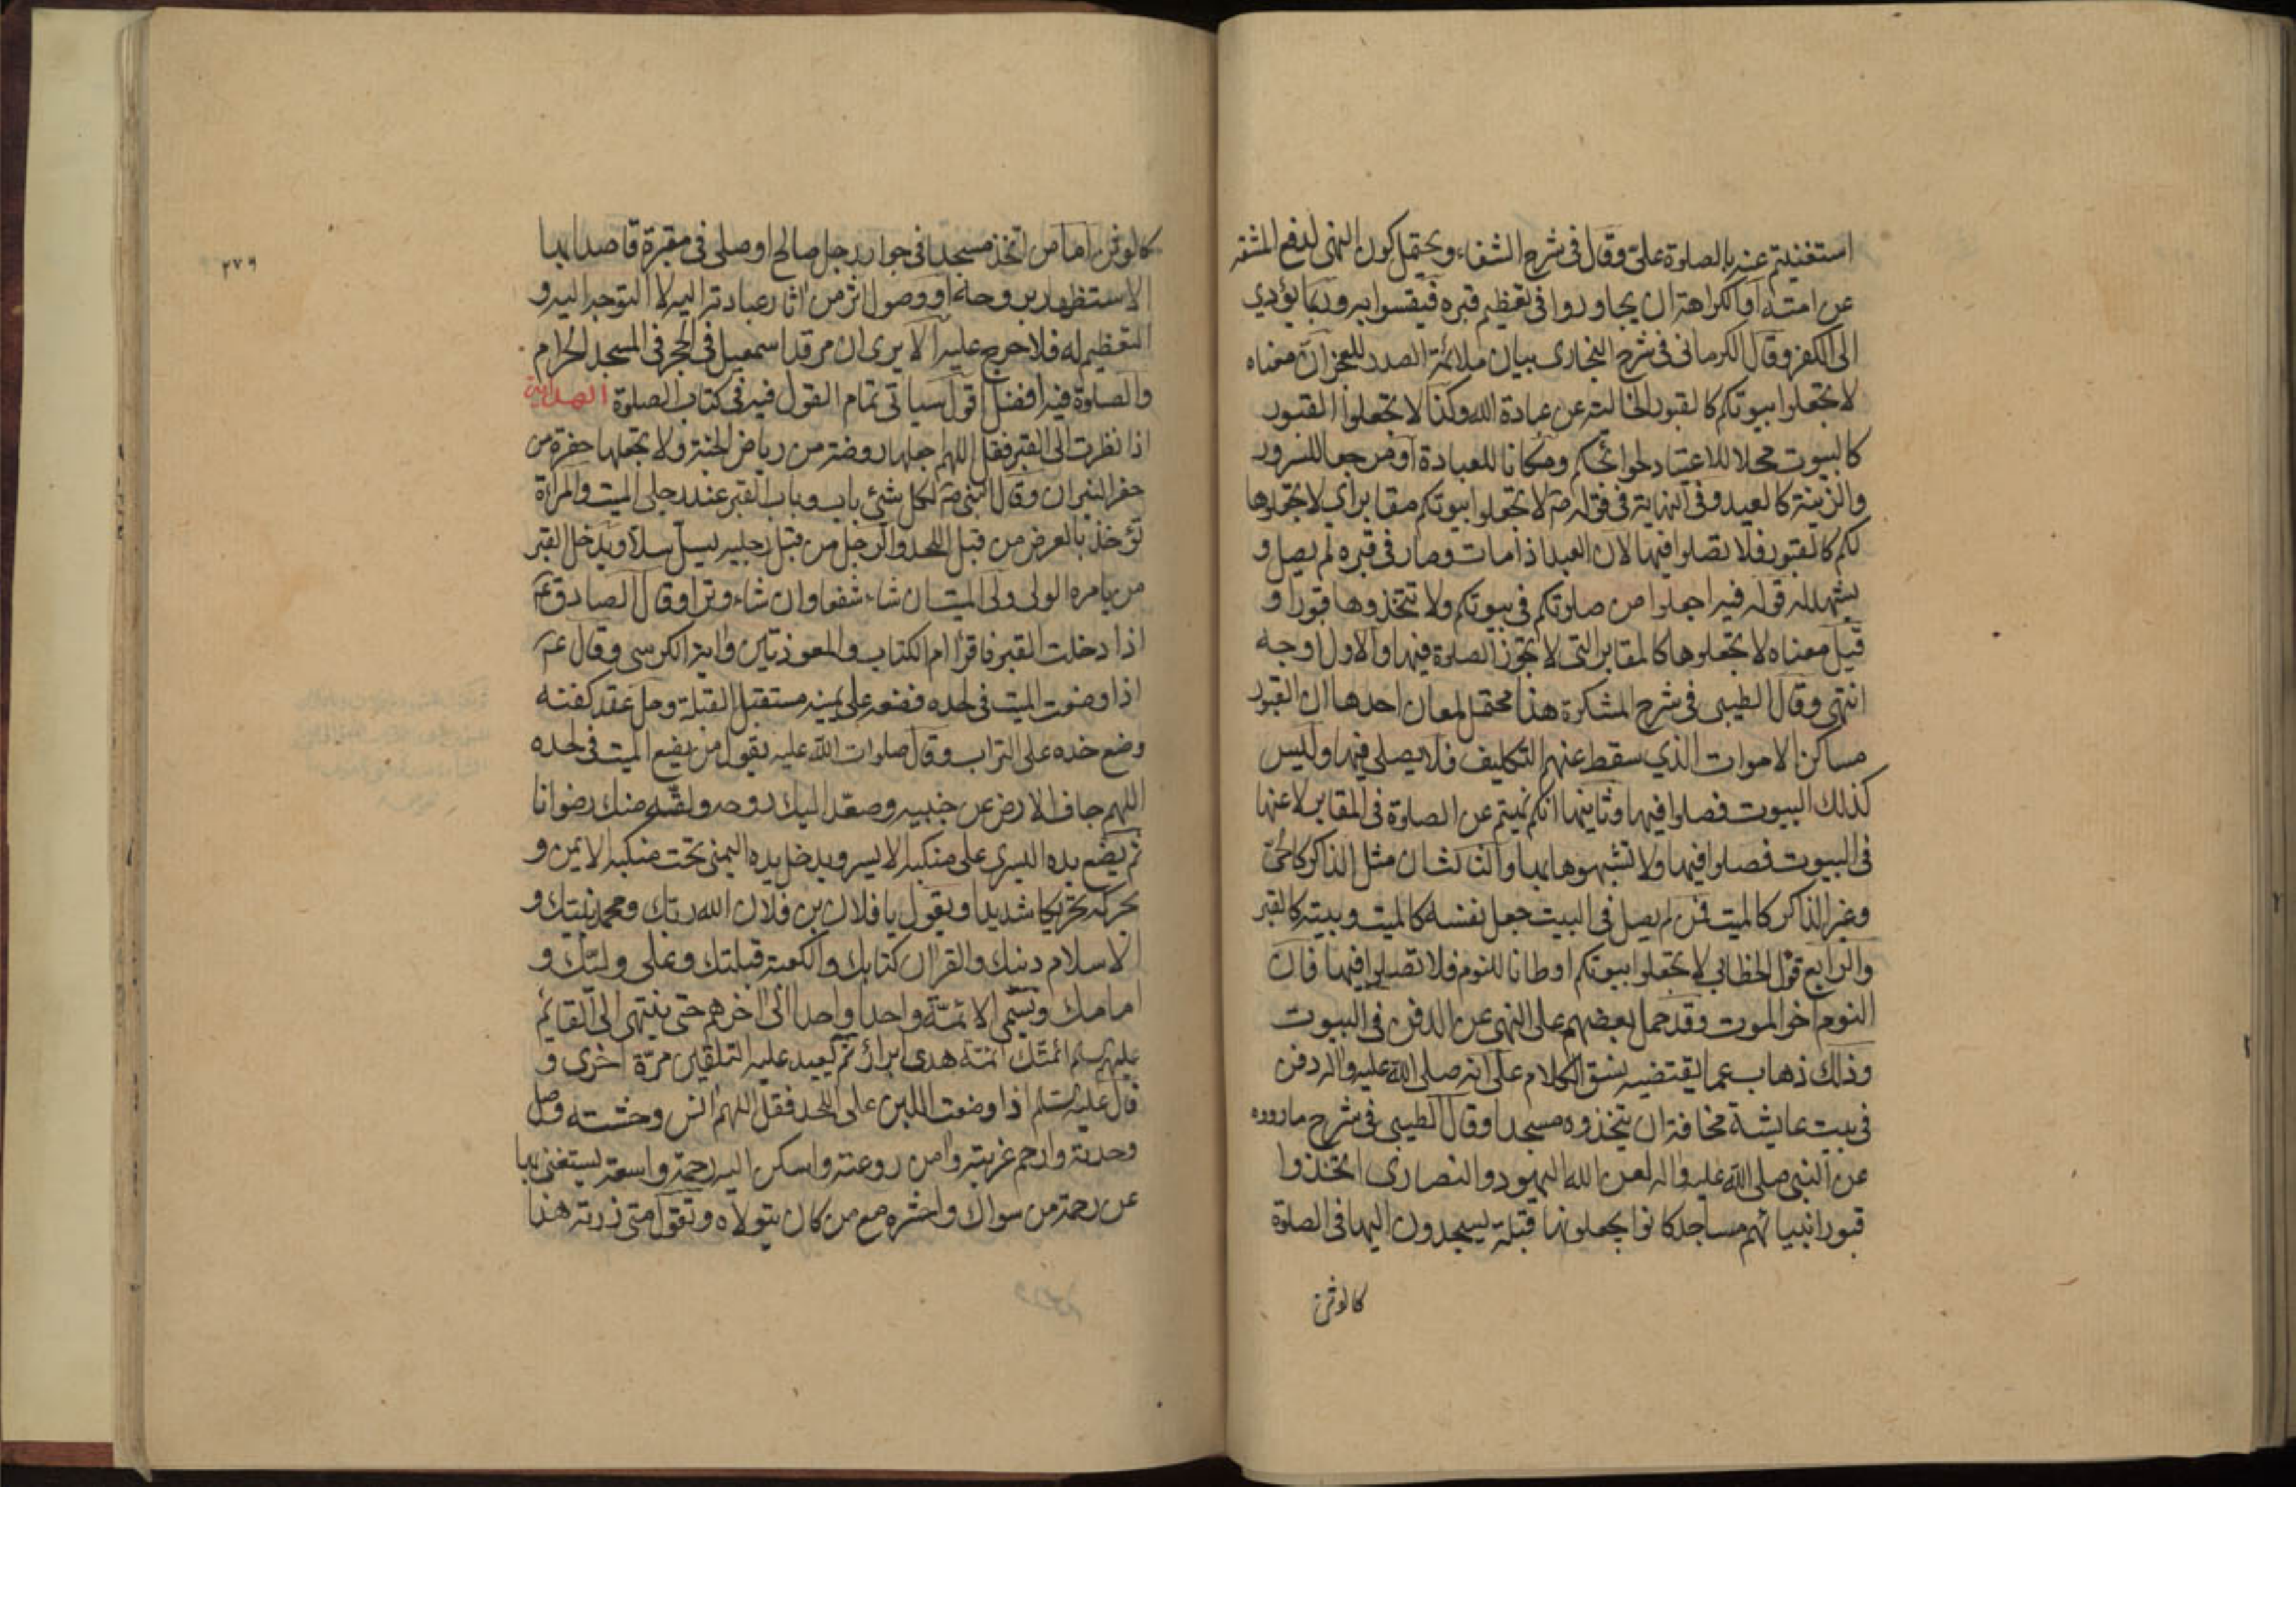 استغنيتم عنه بالصلوة عليّ وقال في شرح الشفاء ويحتمل كون النهى لدفع المشقه
عن امته او لكراهة ان يجاوزوا في تعظيم قبره فيقسوا به وربما يؤدي
الى الكفر وقال الكرماني في شرح البخاري بيان ملائمة الصدر للعجز ان معناه
لا تجعلوا بيوتكم كالقبور الخالية عن عبادة الله وكذا لا تجعلوا القبور
كالبيوت محلا للاعتياد لحوائجكم ومكانا للعبادة او مرجعا للسرور
والزينة كالعيد وفي النهاية في قوله صم لا تجعلوا بيوتكم مقابر اي لا تجعلوها
لكم كالقبور فلا تصلوا فيها لان العبد اذا مات وصار في قبره لم يصل و
يشهد له قوله فيه اجعلوا من صلوتكم في بيوتكم ولا تتخذوها قبورا و
قيل معناه لا تجعلوها كالمقابر التى لا تجوز الصلوة فيها والاول اوجه
انتهى وقال الطيبي في شرح المشكوة هذا محتمل لمعان احدها ان القبور
مساكن الاموات الذي سقط عنهم التكليف فلا يصلى فيها وليس
كذلك البيوت فصلوا فيها وثانيها انكم نهيتم عن الصلوة في المقابر لا عنها
في البيوت فصلوا فيها ولا تشبهوها بها والثالث ان مثل الذاكر كالحىّ
وغير الذاكر كالميت فمن لم يصل في البيت جعل نفسه كالميت وبيته كالقبر
والرابع قول الخطابي لا تجعلوا بيوتكم اوطانا للنوم فلا تصلوا فيها فان
النوم اخو الموت وقد حمل بعضهم على النهى عن الدفن في البيوت
وذلك ذهاب عما يقتضيه نسق الكلام على انه صلى الله عليه واله دفن
في بيت عايشة مخافة ان يتخذوه مسجدا وقال الطيبي في شرح ما رووه
عن النبي صلى الله عليه واله لعن الله اليهود والنصارى اتخذوا
قبور انبيائهم مساجد كانوا يجعلونها قبلة يسجدون اليها في الصلوة
كالوثن
٢٧٩
كالوثن اما من اتخذ مسجدا في جوار رجل صالح او صلى في مقبرة قاصدا بها
الاستظهار بروحه او وصول اثر من اثار عبادته اليه لا التوجه اليه و
التعظيم له فلا حرج عليه الا يرى ان مرقد اسمعيل في الحجر في المسجد الحرام
والصلوة فيه افضل اقول سياتي تمام القول فيه في كتاب الصلوة الهداية
اذا نظرت الى القبر فقل اللهم اجعلها روضة من رياض الجنة ولا تجعلها حفرة من
حفر النيران وقال النبي صم لكل شئ باب وباب القبر عند رجلي الميت والمراة
تؤخذ بالعرض من قبل اللحد والرجل من قبل رجليه يسل سلا ويدخل القبر
من يامره الولى ولى الميت ان شاء شفعا وان شاء وترا وقال الصادق عم
اذا دخلت القبر فاقرا ام الكتاب والمعوذتين واية الكرسي وقال عم
اذا وضعت الميت في لحده فضعه على يمينه مستقبل القبلة وحل عقد كفنه
وضع خده على التراب وقال صلوات الله عليه يقول من يضع الميت في لحده
اللهم جاف الارض عن جنبيه وصعد اليك روحه ولقه منك رضوانا
ثم يضع يده اليسرى على منكبه الايسر ويدخل يده اليمنى تحت منكبه الايمن و
يحركه تحريكا شديدا ويقول يا فلان بن فلان الله ربك ومحمد نبيك و
الاسلام دينك والقران كتابك والكعبة قبلتك وعلي وليك و
امامك ويسمى الائمة واحدا واحدا الى اخرهم حتى ينتهى الى القايم
عليهم السلم ائمتك ائمة هدى ابرار ثم يعيد عليه التلقين مرة اخرى و
قال عليه السلم اذا وضعت اللبن على اللحد فقل اللهم انس وحشته وصل
وحدته وارحم غربته وامن روعته واسكن اليه رحمة واسعة يستغنى بها
عن رحمة من سواك واحشره مع من كان يتولاه وتقول متى زرته هذا